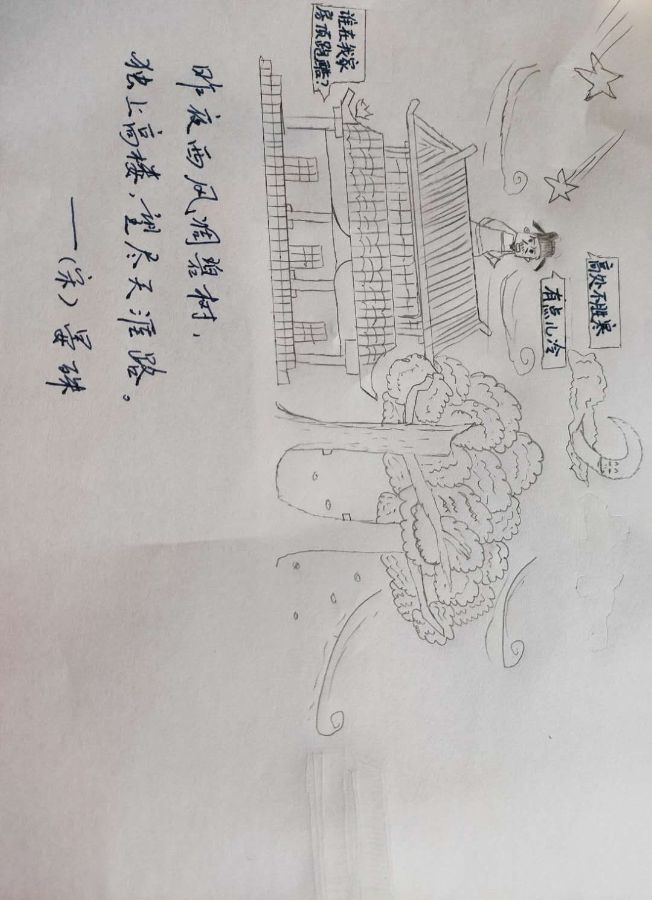 高处不胜寒
有点儿冷
谁在我家
房顶跑酷？
昨夜西风凋碧树，
独上高楼，望尽天涯路。
——（宋）晏殊